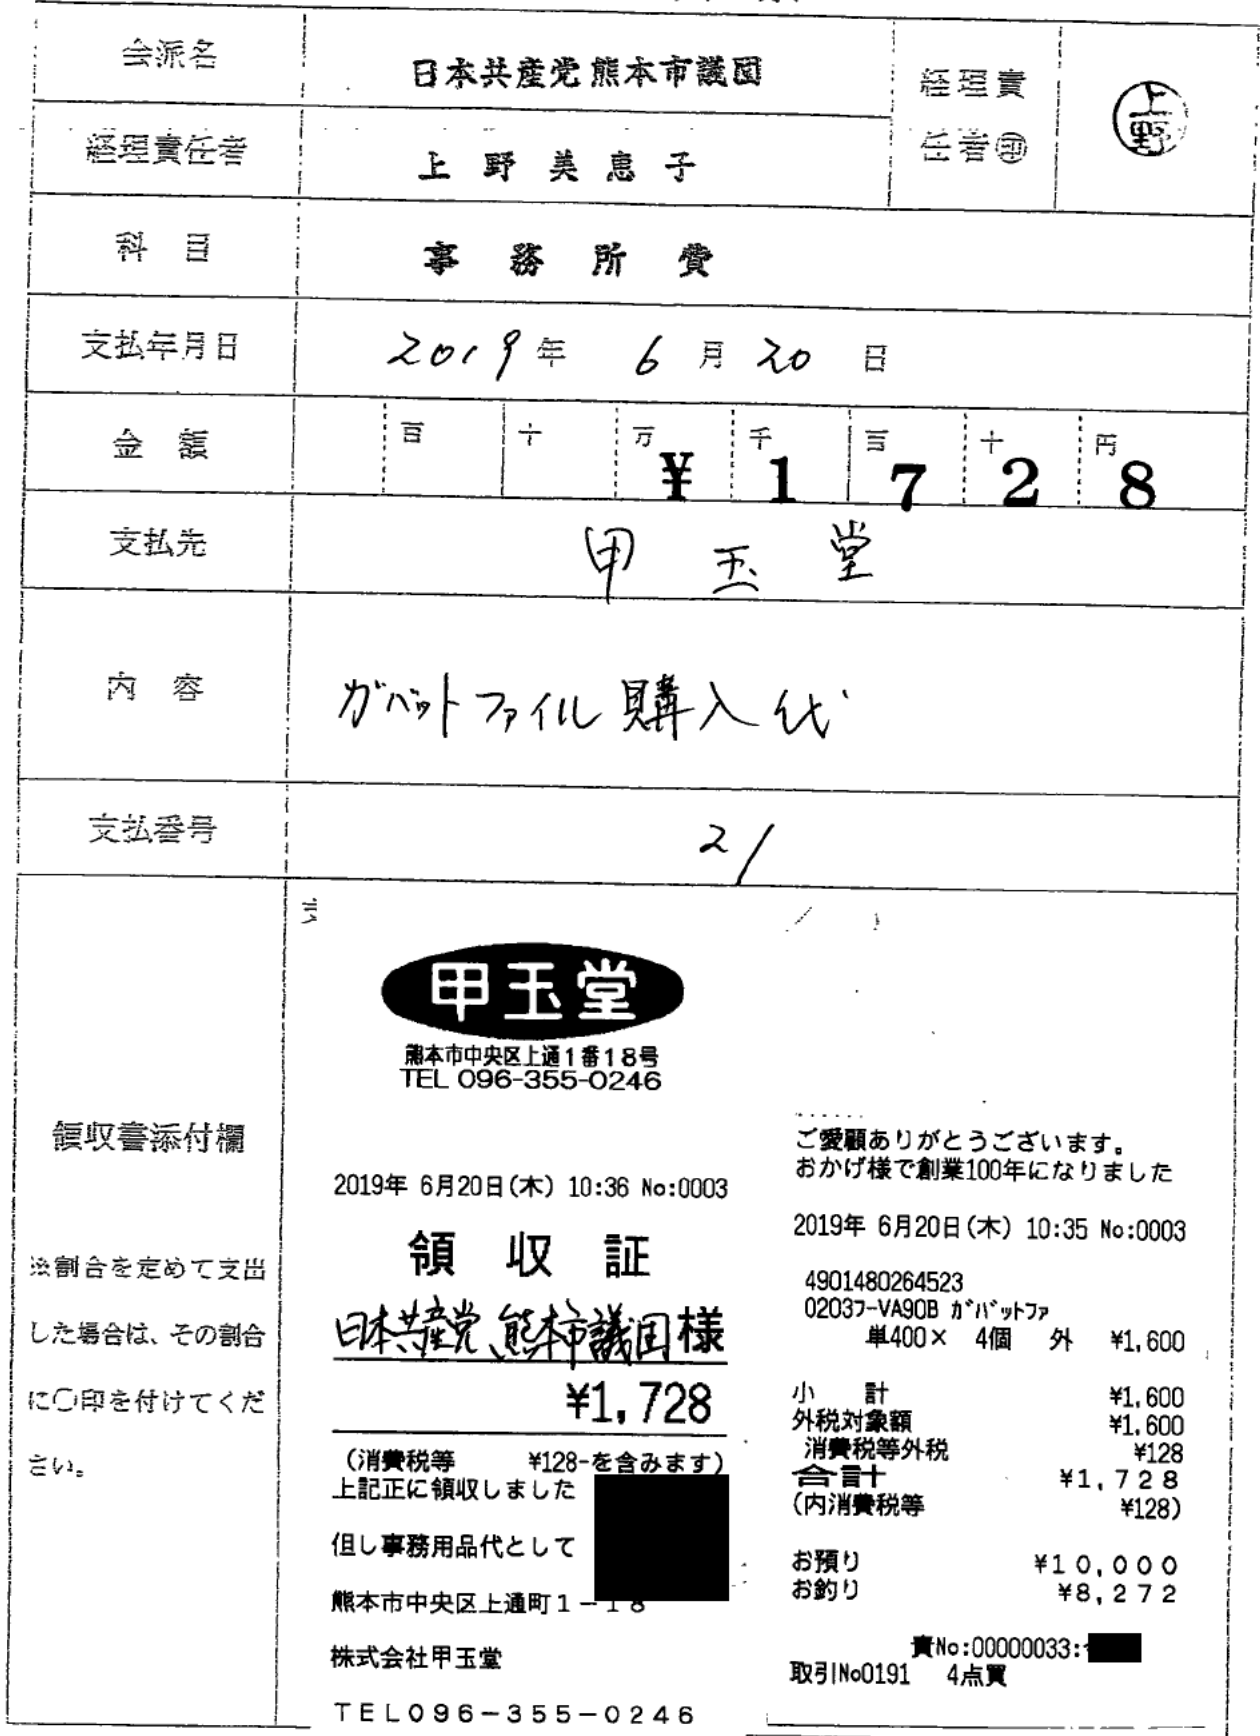 会派名
日本共産党熊本市議団
経理責
任者㊞
上野
経理責任者
上野美恵子
科目
事務所費
支払年月日
2019年 6月20日
金額
百 十 万 千 百 十 円
¥1728
支払先
甲玉堂
内容
ガバットファイル購入代
支払番号
21
領収書添付欄
※割合を定めて支出
した場合は、その割合
に〇印を付けてくだ
さい。
甲玉堂
熊本市中央区上通1番18号
TEL 096-355-0246
2019年 6月20日(木) 10:36 No:0003
領収証
日本共産党熊本市議団様
¥1,728
(消費税等 ¥128-を含みます)
上記正に領収しました
但し事務用品代として
熊本市中央区上通町1-18
株式会社甲玉堂
TEL096-355-0246
ご愛顧ありがとうございます。
おかげ様で創業100年になりました
2019年 6月20日(木) 10:35 No:0003
4901480264523
0203フ-VA90B ガバットファ
単400× 4個 外 ¥1,600
小計 ¥1,600
外税対象額 ¥1,600
消費税等外税 ¥128
合計 ¥1,728
(内消費税等 ¥128)
お預り ¥10,000
お釣り ¥8,272
責No:00000033:
取引No0191 4点買